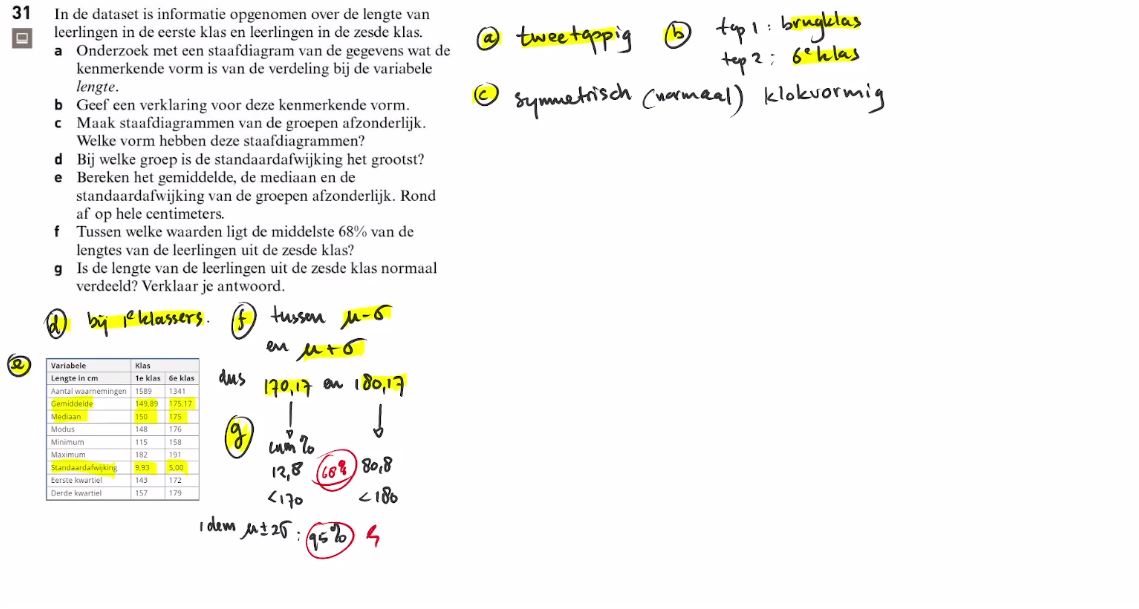 31 In de dataset is informatie opgenomen over de lengte van
leerlingen in de eerste klas en leerlingen in de zesde klas.
a Onderzoek met een staafdiagram van de gegevens wat de
kenmerkende vorm is van de verdeling bij de variabele
lengte.
b Geef een verklaring voor deze kenmerkende vorm.
c Maak staafdiagrammen van de groepen afzonderlijk.
Welke vorm hebben deze staafdiagrammen?
d Bij welke groep is de standaardafwijking het grootst?
e Bereken het gemiddelde, de mediaan en de
standaardafwijking van de groepen afzonderlijk. Rond
af op hele centimeters.
f Tussen welke waarden ligt de middelste 68% van de
lengtes van de leerlingen uit de zesde klas?
g Is de lengte van de leerlingen uit de zesde klas normaal
verdeeld? Verklaar je antwoord.
a tweetoppig
b top 1 : brugklas
top 2 : 6e klas
c symmetrisch (normaal) klokvormig
d bij 1e klassers.
e
Variabele Klas
Lengte in cm 1e klas 6e klas
Aantal waarnemingen 1589 1341
Gemiddelde 149,89 175,17
Mediaan 150 175
Modus 148 176
Minimum 115 158
Maximum 182 191
Standaardafwijking 9,93 5,00
Eerste kwartiel 143 172
Derde kwartiel 157 179
f tussen μ-σ
en μ+σ
dus 170,17 en 180,17
g cum%
12,8 68% 80,8
<170 <180
idem μ±2σ : 95%